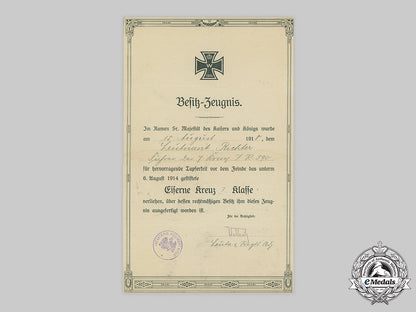 W
Besitz-Zeugnis.
Im Namen Sr. Majestät des Kaisers und Königs wurde
am 10. August 191 dem
Leutnant Richter
für hervorragende Tapferkeit vor dem Feinde das unterm
6. August 1914 gestiftete
Eiserne Kreuz Klasse
verliehen, über dessen rechtmäßigen Besitz ihm dieses Zeug-
nis ausgefertigt worden ist.
Für die Richtigkeit:
Leutn. u. Regts. Adj.
eMedals